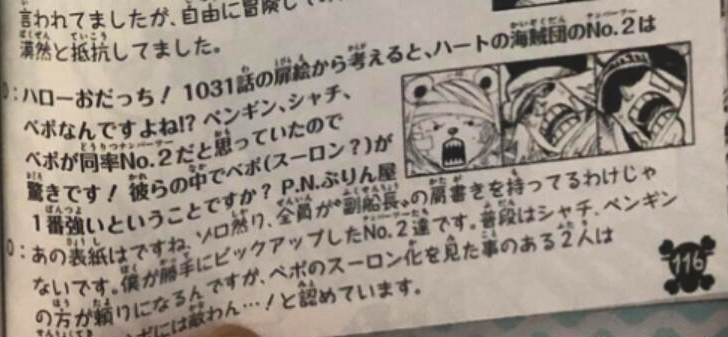 言われてましたが、自由に冒険して
漠然と抵抗してました。
D：ハローおだっち！ 1031話の扉絵から考えると、ハートの海賊団のNo.2は
ベポなんですよね!? ペンギン、シャチ、
ベポが同率No.2だと思っていたので
驚きです！ 彼らの中でベポ(スーロン？)が
1番強いということですか？ P.N.ぷりん屋
O：あの表紙はですね、ゾロ然り、全員が"副船長"の肩書きを持ってるわけじゃ
ないです。僕が勝手にピックアップしたNo.2達です。普段はシャチ、ペンギン
の方が頼りになるんですが、ベポのスーロン化を見た事のある2人は
ベポには敵わん…！と認めています。
116